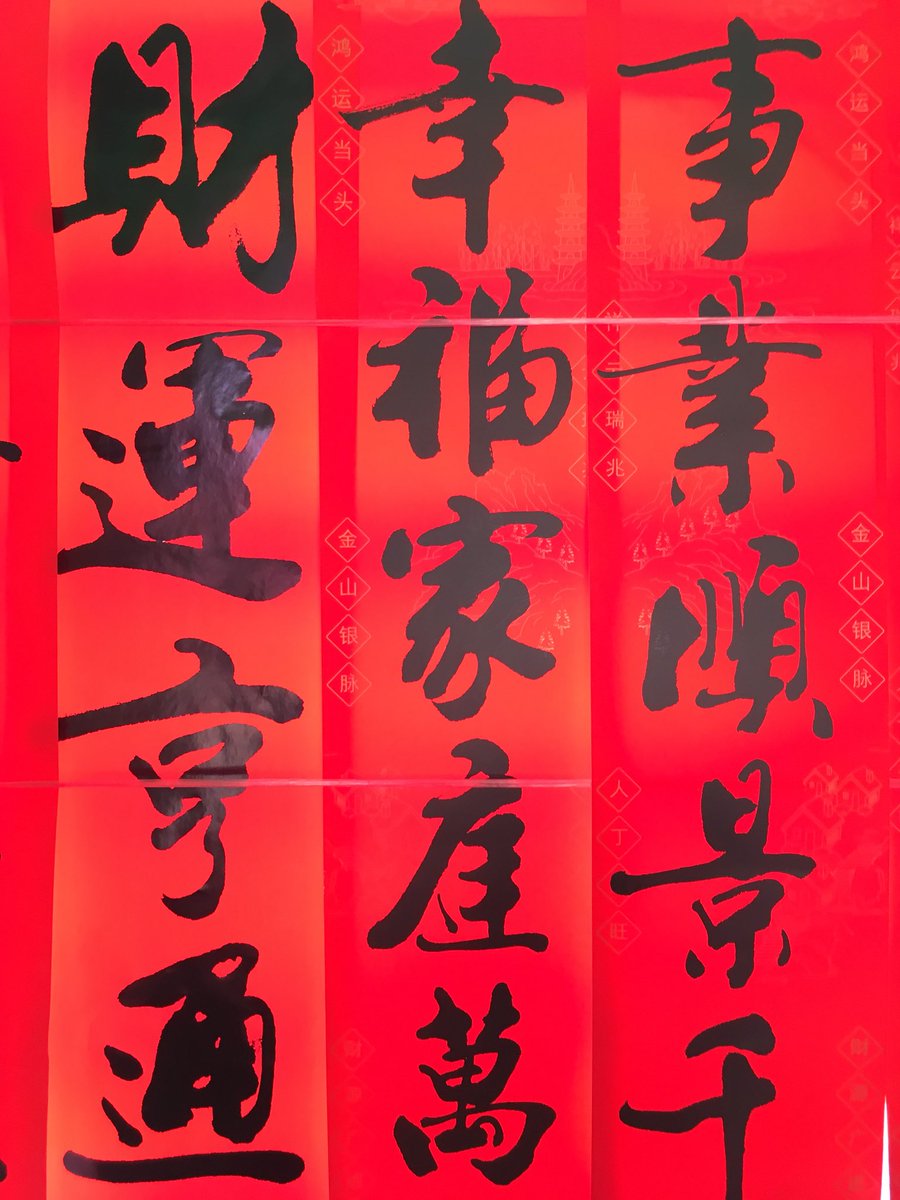 事業順景千
幸福家庭萬
財運亨通
鸿运当头
金山银脉
鸿运当头
瑞兆
金山银脉
人丁旺